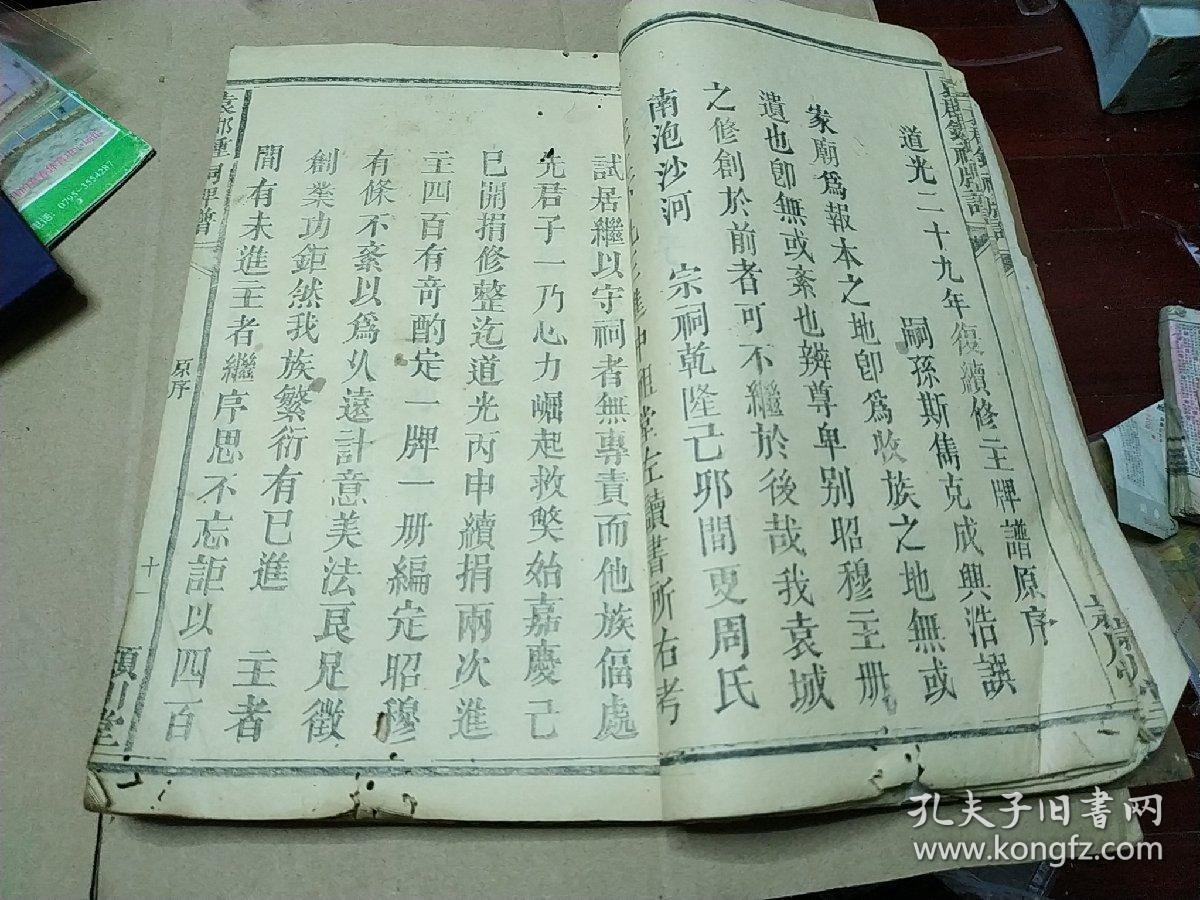 道光二十九年復續修主牌譜原序
嗣孫斯儁克成興浩譔
家廟爲報本之地卽爲收族之地無或
遺也卽無或紊也辨尊卑別昭穆主册
之修創於前者可不繼於後哉我袁城
南池沙河 宗祠乾隆己卯間更周氏
試居繼以守祠者無專責而他族偪處
先君子一乃心力崛起救獘始嘉慶己
巳開捐修整迄道光丙申續捐兩次進
主四百有奇酌定一牌一册編定昭穆
有條不紊以爲久遠計意美法良足徵
創業功鉅然我族繁衍有已進 主者
間有未進主者繼序思不忘詎以四百
原序
十一
電话:0795-3554287
孔夫子旧书网
www.kongfz.com